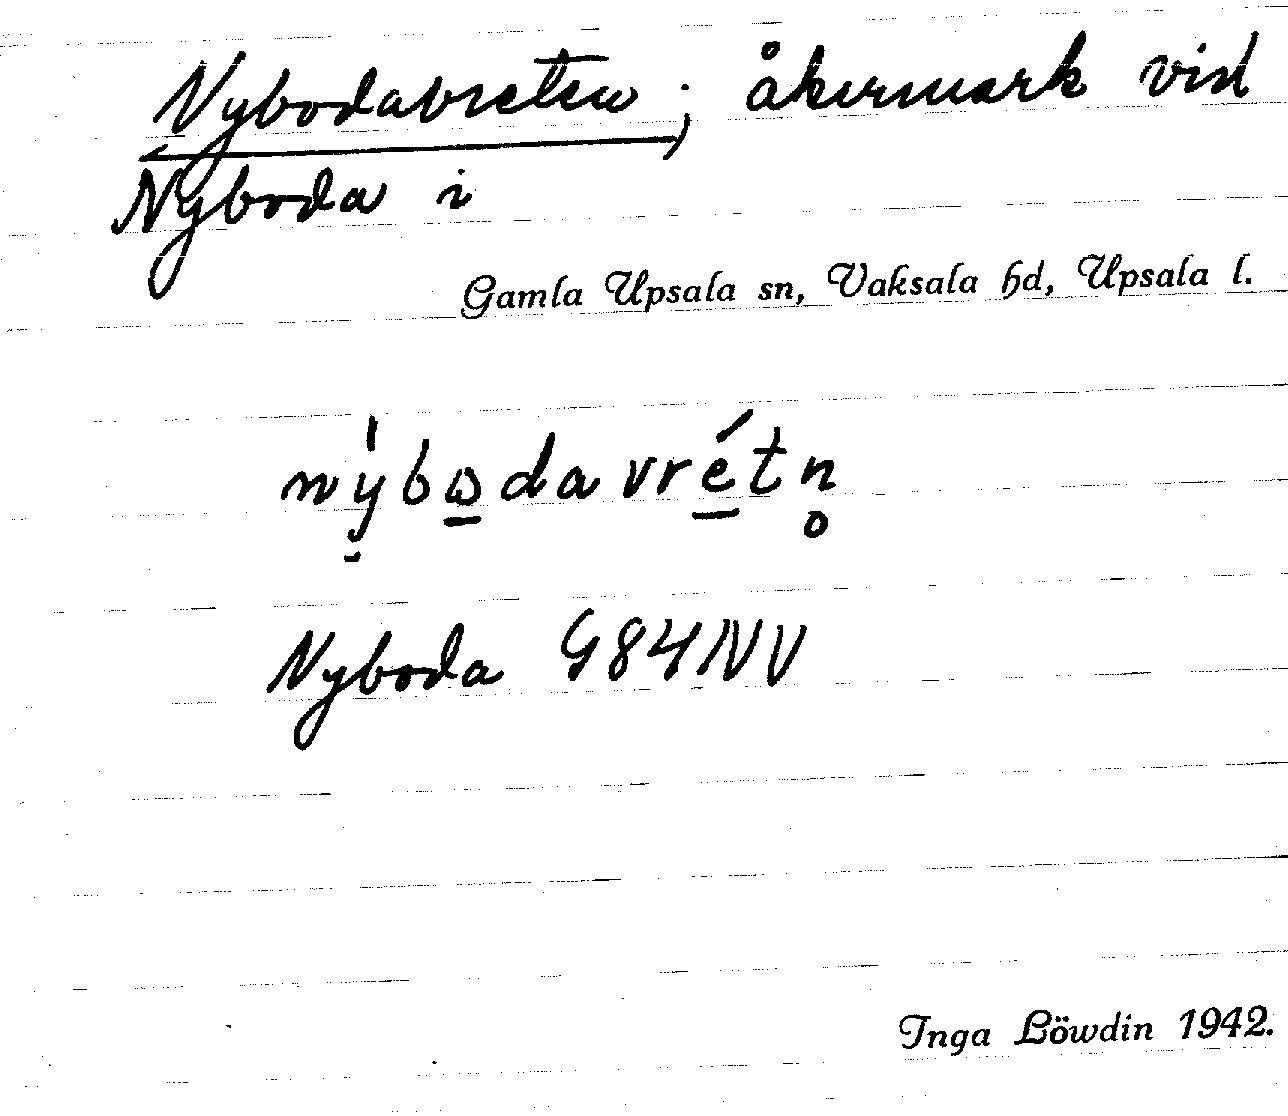 Nybodavreten; åkermark vid
Nyboda i
Gamla Upsala sn, Vaksala hd, Upsala l.
ny̠̍bɷ̠davré̠tn̥
Nyboda G84NV
Inga Löwdin 1942.